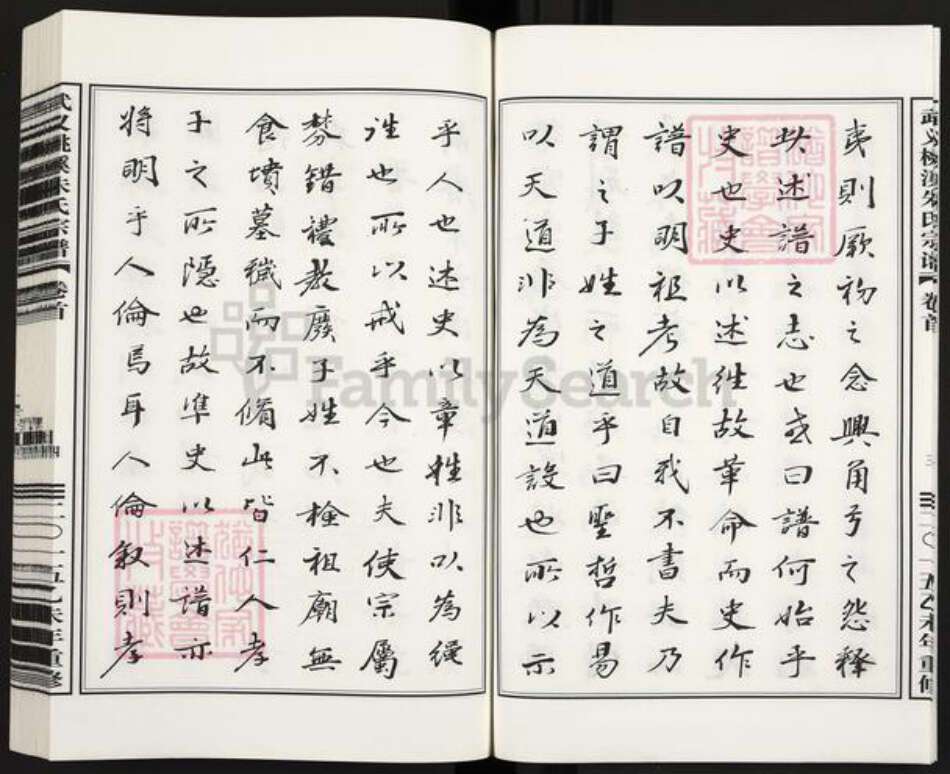 夷則厥初之念興角弓之怨釋
此述譜之志也或曰譜何始乎
史也史以述往故革命而史作
譜以明祖考故自我不書夫乃
謂之子姓之道乎曰聖哲作易
以天道非為天道設也所以示
乎人也述史以章往非以為缓
往也所以戒乎今也夫使宗屬
棼錯禮教廢子姓不檢祖廟無
食墳墓穢而不脩此皆仁人孝
子之所隱也故準史以述譜亦
將明乎人倫焉耳人倫敘則孝
武义桃溪朱氏宗譜【卷首
二〇一五乙未年重修
武义桃溪朱氏宗譜【卷首
二〇一五乙未年重修
FamilySearch